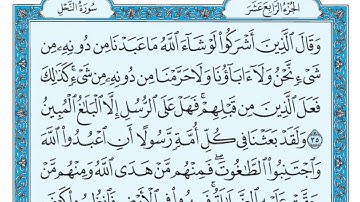 الجزء الرابع عشر
سورة النحل
وَقَالَ ٱلَّذِينَ أَشْرَكُوا۟ لَوْ شَآءَ ٱللَّهُ مَا عَبَدْنَا مِن دُونِهِۦ مِن
شَىْءٍ نَّحْنُ وَلَآ ءَابَآؤُنَا وَلَا حَرَّمْنَا مِن دُونِهِۦ مِن شَىْءٍ ۚ كَذَٰلِكَ
فَعَلَ ٱلَّذِينَ مِن قَبْلِهِمْ ۚ فَهَلْ عَلَى ٱلرُّسُلِ إِلَّا ٱلْبَلَٰغُ ٱلْمُبِينُ
٣٥ وَلَقَدْ بَعَثْنَا فِى كُلِّ أُمَّةٍ رَّسُولًا أَنِ ٱعْبُدُوا۟ ٱللَّهَ
وَٱجْتَنِبُوا۟ ٱلطَّٰغُوتَ ۖ فَمِنْهُم مَّنْ هَدَى ٱللَّهُ وَمِنْهُم مَّنْ